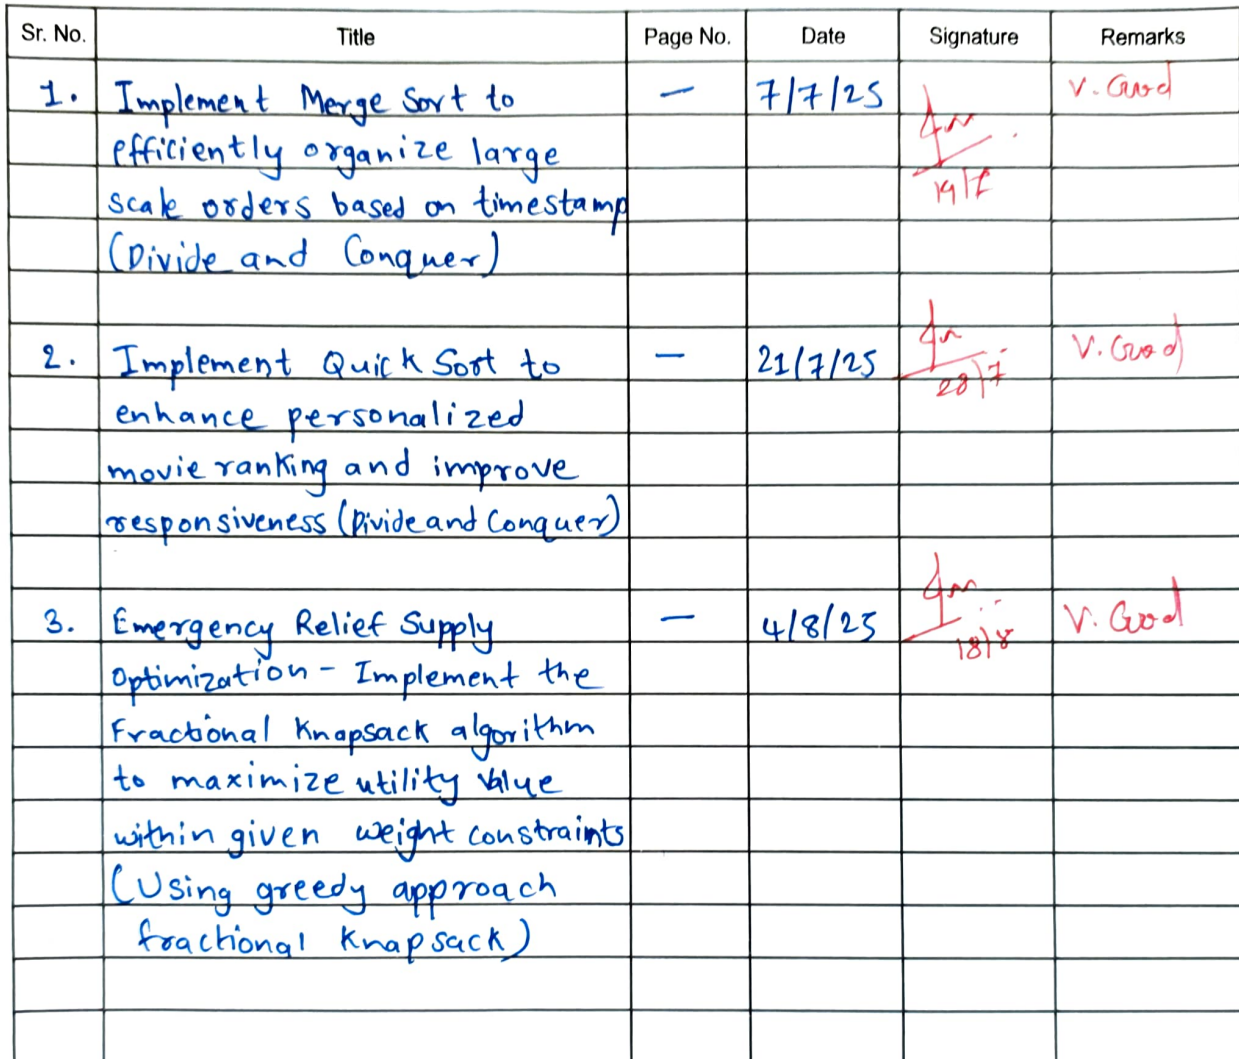 Sr. No. Title Page No. Date Signature Remarks
1. Implement Merge Sort to — 7/7/25 V. Good
efficiently organize large
scale orders based on timestamp 19/7
(Divide and Conquer)
2. Implement Quick Sort to — 21/7/25 28/7 V. Good
enhance personalized
movie ranking and improve
responsiveness (Divide and Conquer)
3. Emergency Relief Supply — 4/8/25 18/8 V. Good
Optimization - Implement the
Fractional Knapsack algorithm
to maximize utility value
within given weight constraints
(Using greedy approach
fractional Knapsack)